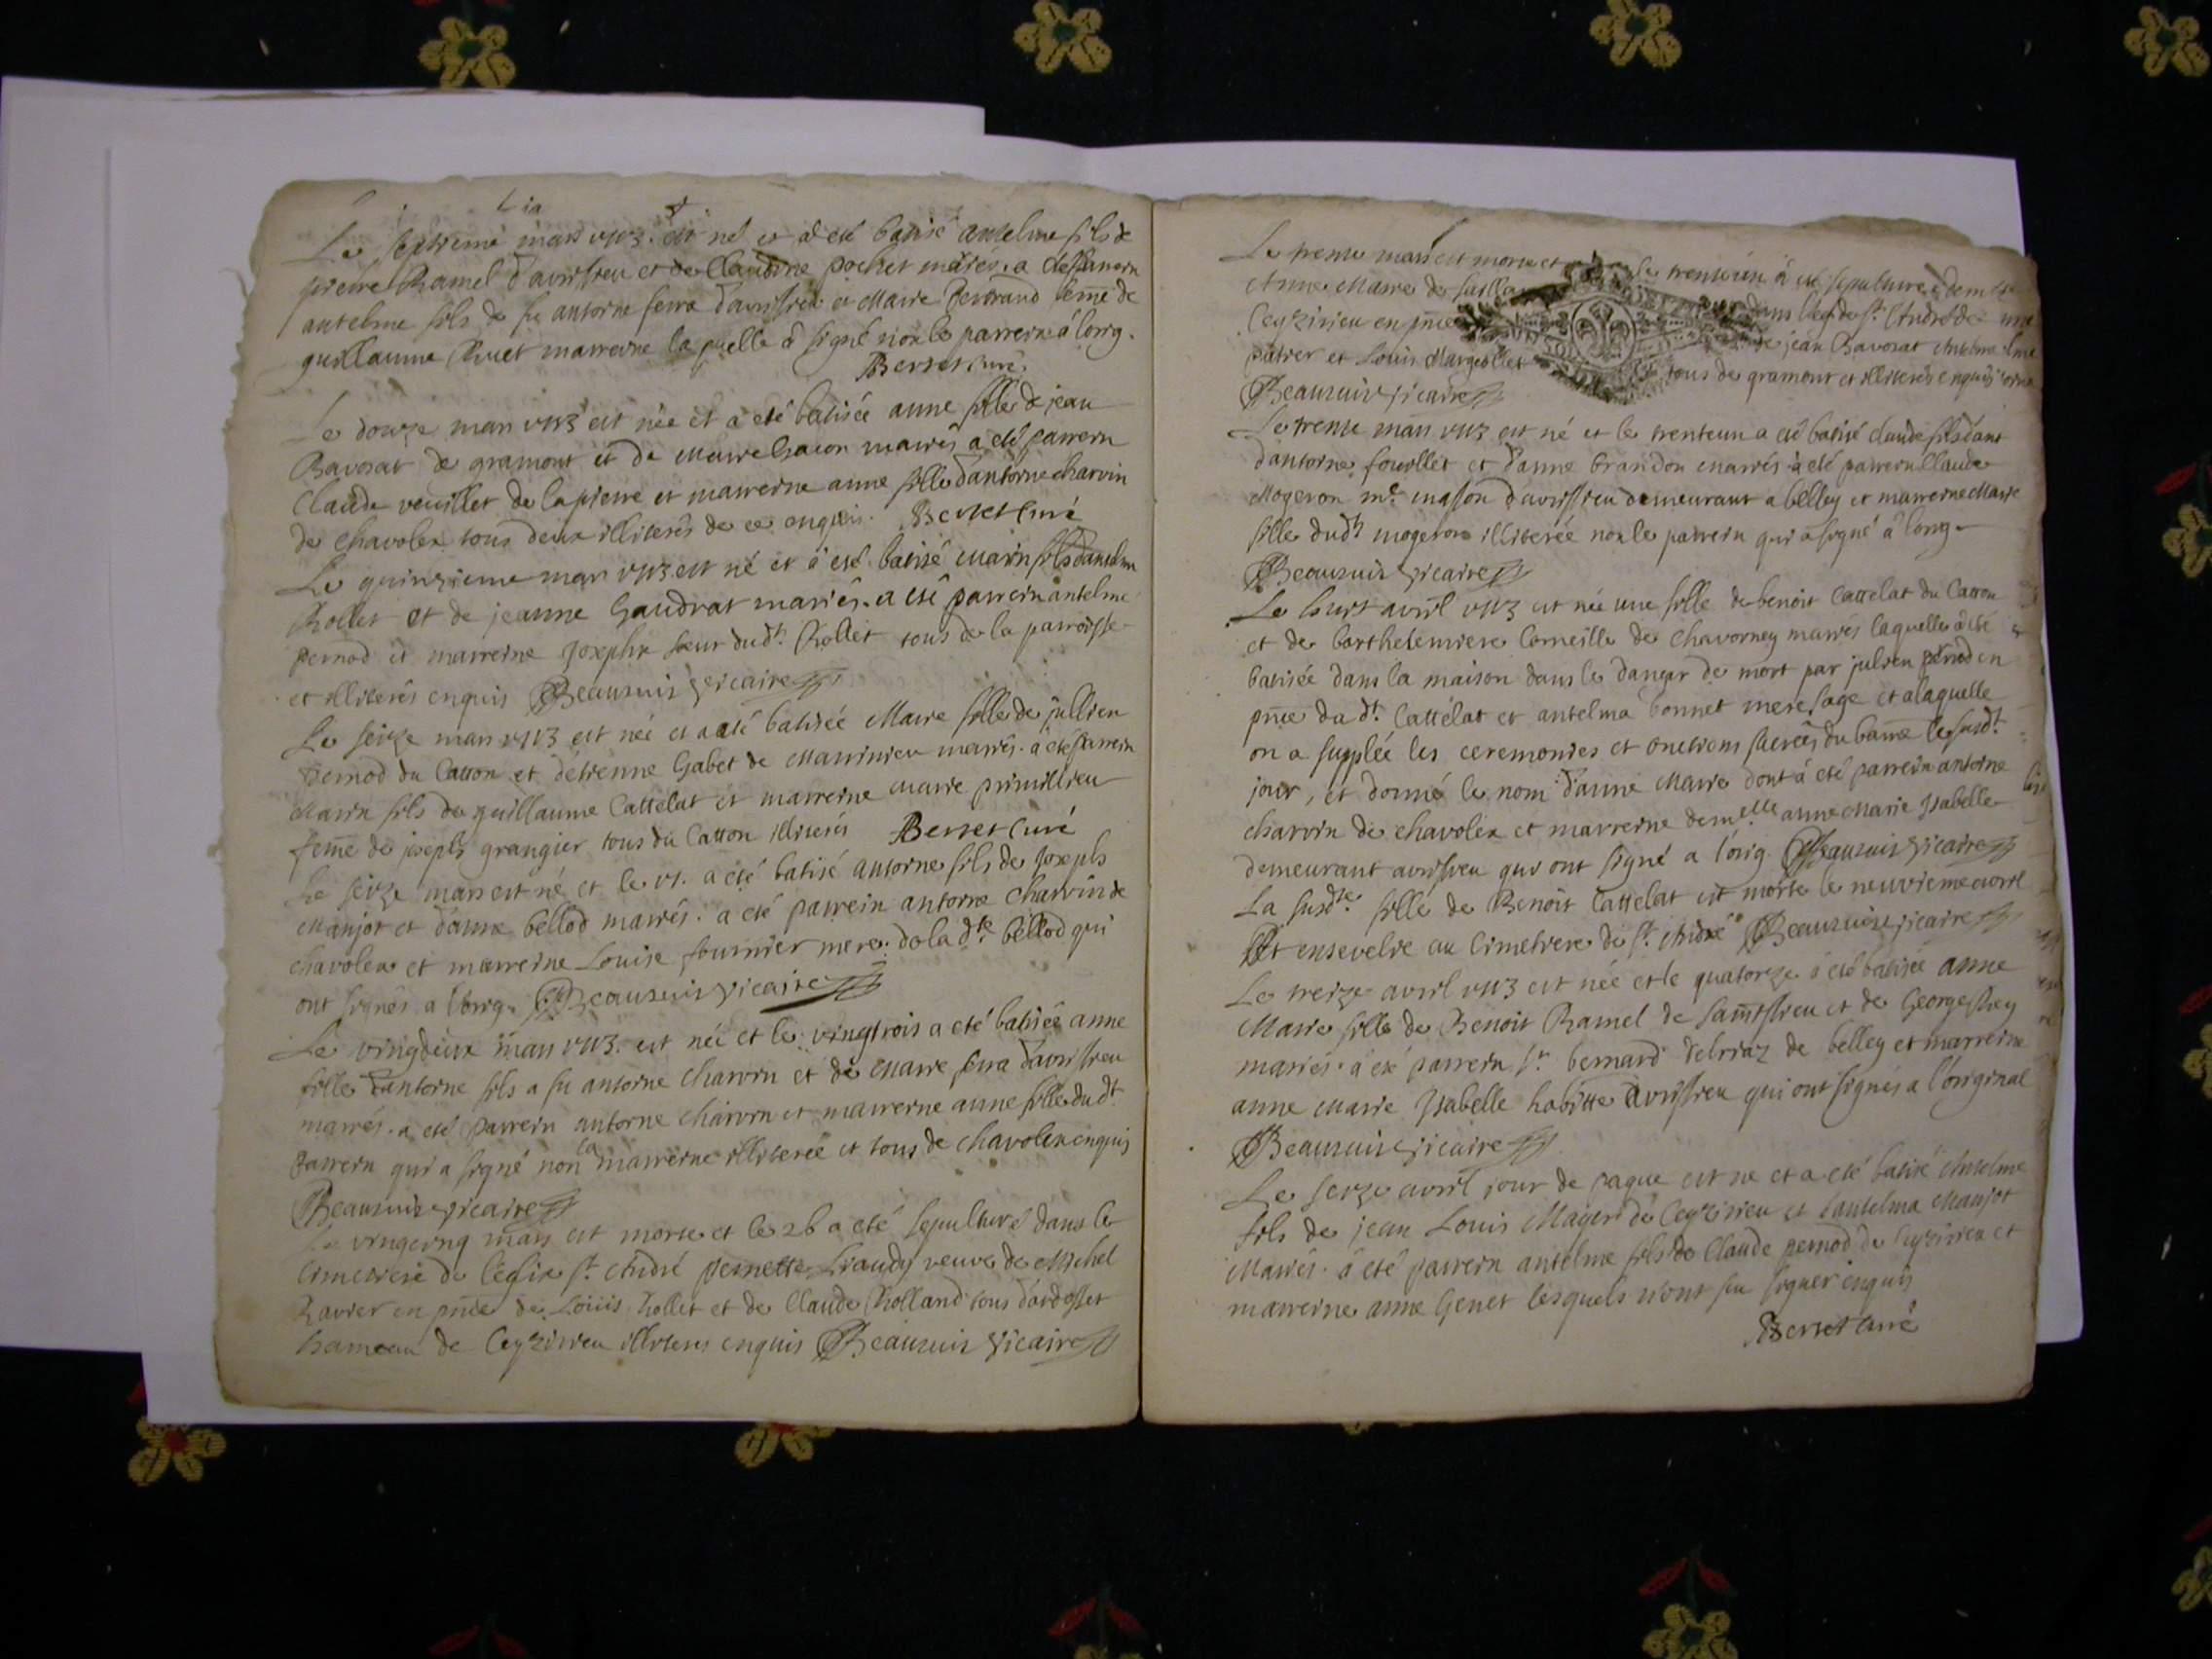 Le septieme mars 1713. est né et a eté batisé antelme fils de
pierre Ramel d'avrissieu et de Claudine pochet mariés. a eté parrein
antelme fils de fu antoine serra d'avrissieu et Marie Bertrand femme de
guillaume huet marreine laquelle a signé non le parrein à l'orig.
Berset Curé
Le douze mars 1713 est née et a eté batisée anne fille de jean
Bavosat de gramont et de Marie Gacon mariés a eté parrein
Claude veuillet de lapierre et marreine anne fille d'antoine charvin
de chavolex tous deux illiterés de ce enquis. Berset Curé
Le quinzieme mars 1713 est né et a eté batisé Marin fils d'antelme
Rollet et de jeanne Gaudrat mariés. a eté parrein antelme
pernod et marreine Josephe sœur dudt Rollet tous de la parroisse
et illiterés enquis Beauruis Vicaire
Le seize mars 1713 est née et a eté batisée Marie fille de jullien
pernod du Catton et d'etienne Gabet de Marinieu mariés. a eté parrein
Marin fils de guillaume Cattelat et marreine Marie primillieu
femme de joseph grangier tous du Catton illiterés Berset Curé
Le seize mars est né et le 17. a eté batisé antoine fils de Joseph
Manjot et d'anne bellod mariés. a eté parrein antoine Charvin de
chavolex et marreine Louise fournier mere de la dte bellod qui
ont signés a l'orig. Beauruis Vicaire
Le vingdeux mars 1713. est née et le vingtrois a eté batisée anne
fille d'antoine fils a fu antoine charvin et de Marie serra d'avrissieu
mariés. a eté parrein antoine charvin et marreine anne fille dudt
parrein qui a signé non la marreine illiterée et tous de chavolex enquis
Beauruis Vicaire
Le vingcinq mars est morte et le 26 a eté sepulturé dans le
cimetiere de l'eglise St André pernette Liaudy veuve de Michel
Ravier en pnce de Louis Rollet et de Claude Rolland tous d'ardosset
hameau de Ceyzirieu illiterés enquis Beauruis Vicaire
Le trente mars est morte et le trenteun à eté sepulturée
Anne Marie de
Ceyzirieu en pnce dans l'eglise St André de
pitrer et Louis Margeollet de jean Bavosat
tous de gramont et illiterés enquis
Beauruis Vicaire
Le trente mars 1713 est né et le trenteun a eté batisé claude fils dant
d'antoine fouillet et d'anne brandon mariés à eté parrein Claude
Mogeron me masson d'avrissieu demeurant a belley et marreine Marie
fille dudt mogeron illiterée non le parrein qui a signé à l'orig
Beauruis Vicaire
Le huit avril 1713 est née une fille de benoit Cattelat du Catton
et de barthelemiere Corneille de Chavorney mariés laquelle a eté
batisée dans la maison dans le danger de mort par julien pernod en
pnce dudt Cattelat et antelma bonnet mere sage et a laquelle
on a supplée les ceremonies et onctions sacrées du batme le susdt
jour, et donné le nom d'anne Marie dont à eté parrein antoine
charvin de chavolex et marreine demelle anne Marie Isabelle
demeurant avrissieu qui ont signé a l'orig. Beauruis Vicaire
La susdte fille de Benoit Cattelat est morte le neuvieme avril
Et ensevelie au Cimetiere de St André Beauruis Vicaire
Le treize avril 1713 est née et le quatorze a eté batisée anne
Marie fille de Benoit Ramel de et de George Rey
mariés. a eté parrein Sr bernard de belley et marreine
anne Marie Isabelle avrissieu qui ont signés a l'original
Beauruis Vicaire
Le seize avril jour de paque est né et a eté batisé Antelme
fils de jean Louis Magin de Ceyzirieu et d'antelma Manjot
Mariés. à eté parrein antelme fils de Claude pernod de Ceyzirieu et
marreine anne Genet lesquels n'ont su signer enquis
Berset Curé